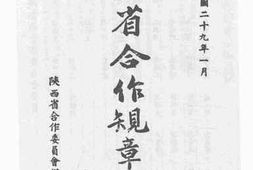 國二十九年一月
省合作規章
陝西省合作委員會